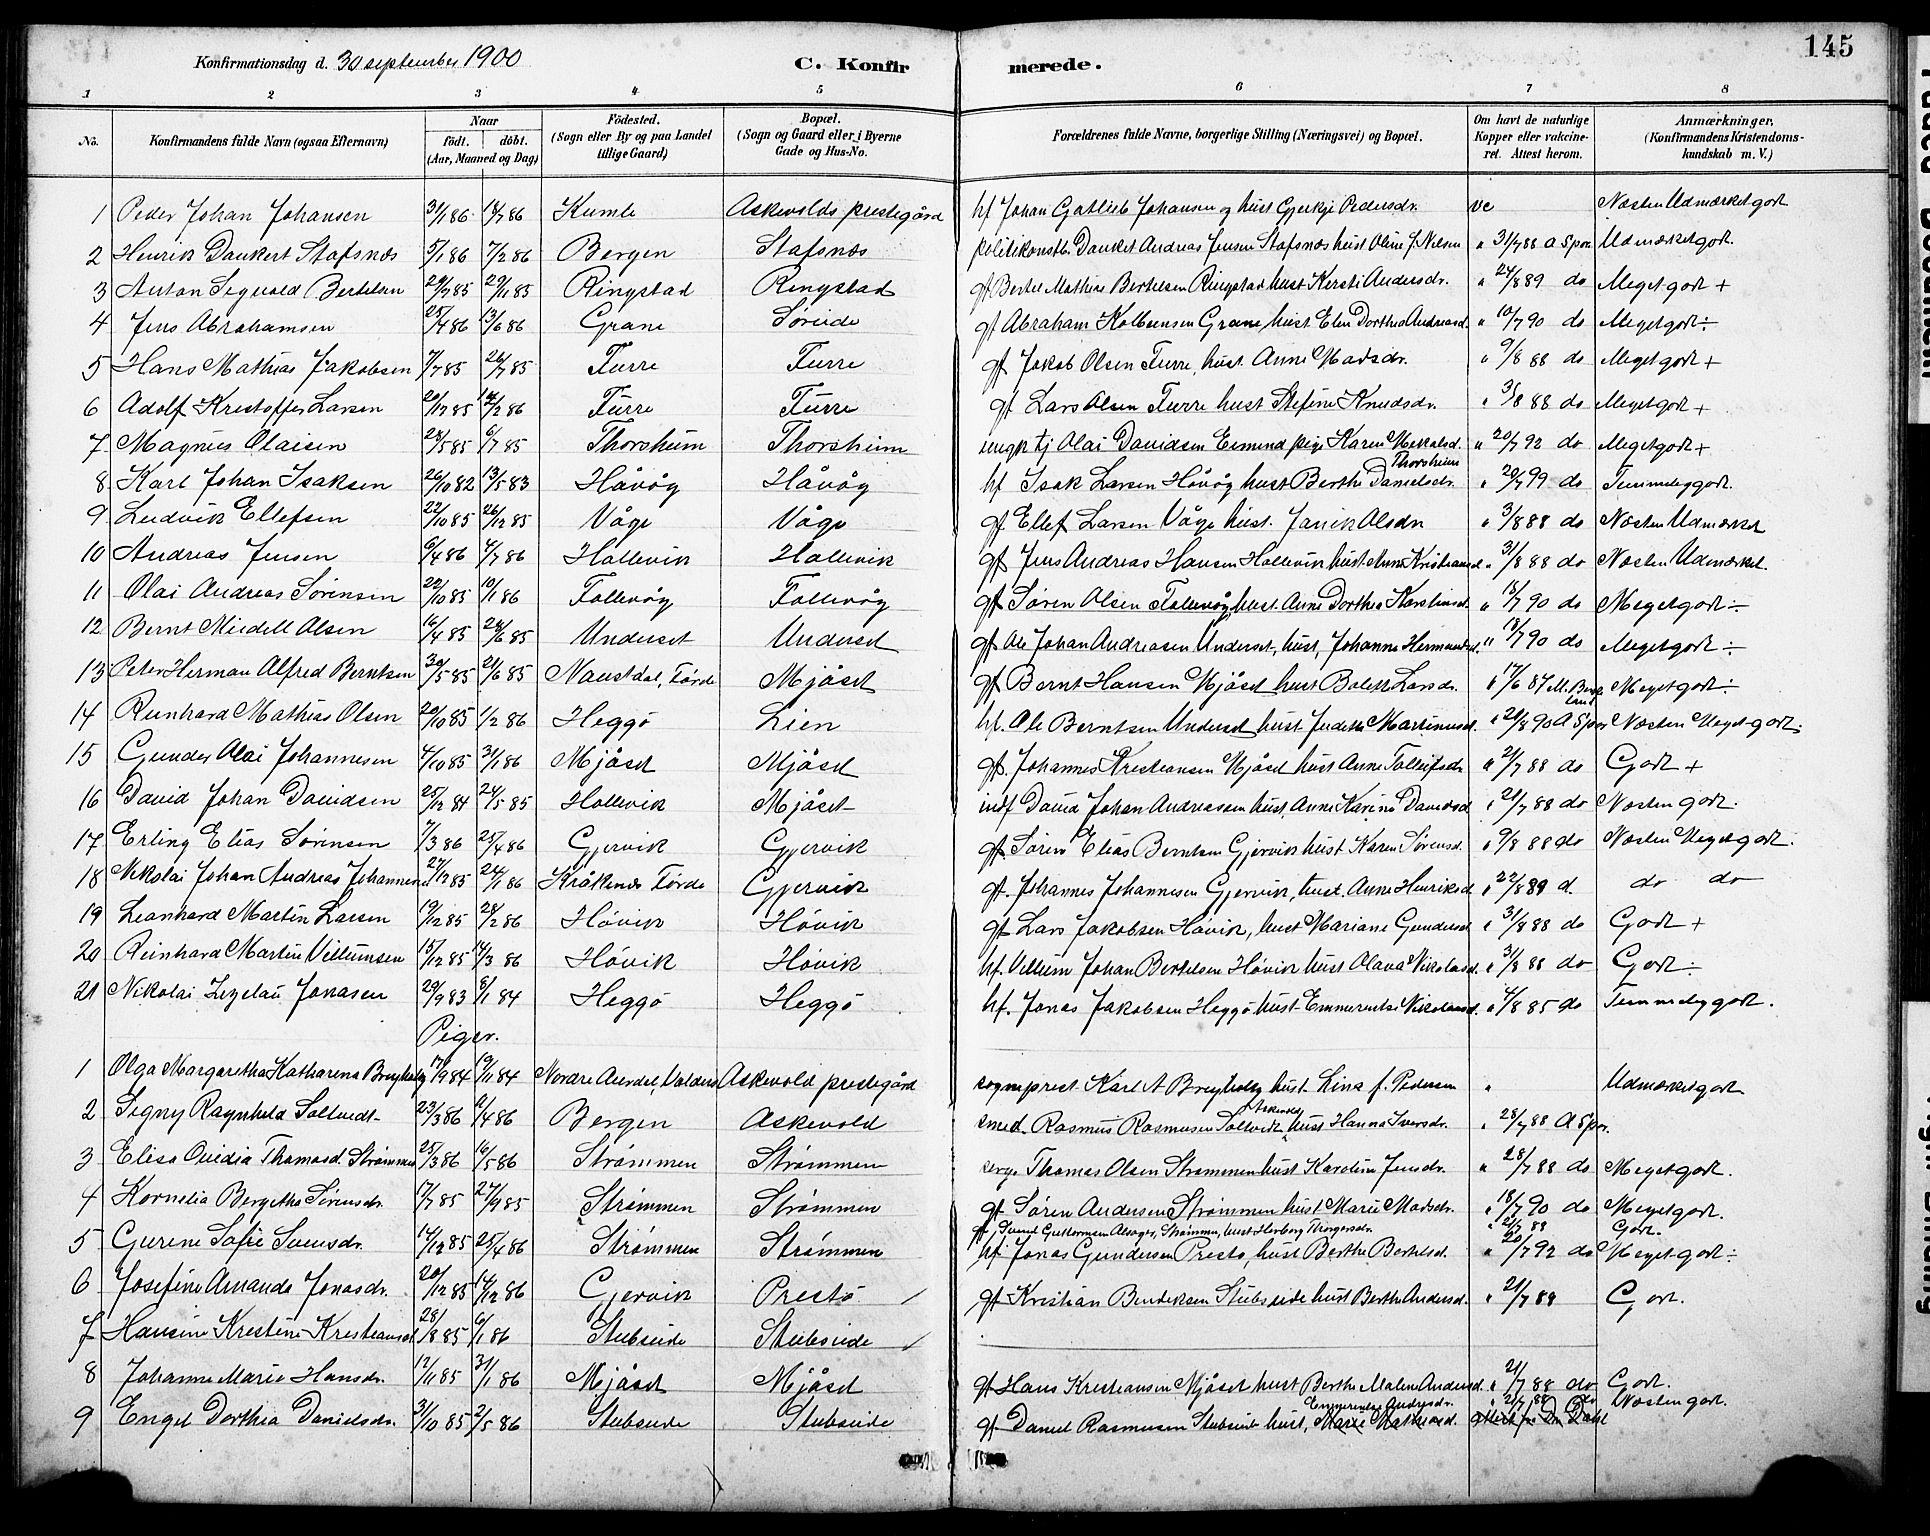 Konfirmationsdag d. 30 september 1900
C. Konfirmerede.
145
1 2 3 4 5 6 7 8
No. Konfirmandens fulde Navn (ogsaa Efternavn) Naar født. døbt. (Aar, Maaned og Dag) Fødested. (Sogn eller By og paa Landet tillige Gaard) Bopæl. (Sogn og Gaard eller i Byerne Gade og Hus-No. Forældrenes fulde Navne, borgerlige Stilling (Næringsvei) og Bopæl. Om havt de naturlige Kopper eller vakcineret. Attest herom. Anmærkninger. (Konfirmandens Kristendomskundskab m. V.)
1 Peder Johan Johansen 31/1 86 14/7 86 Kumle Askevolds prestegård hf Johan Gotlieb Johansen og hust Gjertje Pedersdr. ve Næsten Udmærket godt
2 Henrik Dankert Stafsnæs 5/1 86 7/2 86 Bergen Stafsnæs politikonstb. Danket Andreas Jensen Stafsnæs hust Oline f. Nilsen " 31/7 88 A Spor. Udmærket godt.
3 Anton Sigvald Bertelsen 29/7 85 29/11 85 Ringstad Ringstad gf Bertel Mathias Bertelsen Ringstad hust Kersti Andersdr. " 24/8 89 do Meget godt +
4 Jens Abrahamsen 25/4 86 13/6 86 Grane Søreide gf Abraham Kolbensen Grane, hust. Elen Dorthea Andreasd. " 10/7 90 do Meget godt ÷
5 Hans Mathias Jakobsen 7/7 85 26/7 85 Furre Furre gf Jakob Olsen Furre, hust. Anne Madsdr. " 9/8 88 do Meget godt +
6 Adolf Kristoffer Larsen 20/12 85 14/2 86 Furre Furre gf Lars Olsen Furre hust Stefine Knudsdr. " 3/8 88 do Meget godt +
7 Magnus Olaisen 24/5 85 6/7 85 Thorsheim Thorsheim ungk tj Olai Davidsen Esmend pige Karen Mekalsd. Thorsheim " 20/7 92 do Meget godt +
8 Karl Johan Isaksen 26/10 82 13/5 83 Håvåg Håvåg hf Isak Larsen Håvåg hust Berthe Danielsdr. " 20/7 99 do Temmelig godt.
9 Ludvik Ellefsen 22/10 85 26/12 85 Våge Våge gf Ellef Larsen Våge hust. Janik Olsdr " 3/8 88 do Næsten Udmærket
10 Andreas Jensen 6/4 86 4/7 86 Hollevik Hollevik gf Jens Andreas Hansen Hollevik hust. Anne Kristiansd. " 31/8 88 do Næsten Udmærket.
11 Olai Andreas Sørensen 22/10 85 10/1 86 Follevåg Follevåg gf Søren Olsen Follevåg hust. Anne Dorthea Karstensd. " 18/7 90 do Meget godt ÷
12 Bernt Meidell Olsen 16/4 85 24/6 85 Underset Underset gf Ole Johan Andreasen Underset, hust, Johanne Hermundsd. " 18/7 90 do Meget godt ÷
13 Peter Herman Alfred Berntsen 30/5 85 21/6 85 Naustdal, Førde Mjåset gf Bernt Hansen Mjåset hust Bolett Larsdr. " 17/6 87 Meget godt ÷
14 Reinhard Mathias Olsen 20/10 85 1/2 86 Heggø Lien hf. Ole Berntsen Underset hust Judithe Martinusd. " 21/8 90 A Spor Næsten Meget godt.
15 Gunder Olai Johannesen 4/10 85 31/1 86 Mjåset Mjåset gf. Johannes Kristiansen Mjåset hust Anne Tolleifsdr " 21/7 88 do Godt +
16 David Johan Davidsen 25/12 84 24/5 85 Hollevik Mjåset indf David Johan Andreassen hust. Anne Karine Davidsd " 21/7 88 do Næsten godt.
17 Erling Elias Sørensen 7/3 86 25/4 86 Gjervik Gjervik gf. Søren Elias Berntsen Gjervik hust Karen Sørensd. " 9/8 88 do Næsten Meget godt.
18 Nikolai Johan Andreas Johannesen 27/12 85 24/1 86 Kråkenes Førde Gjervik gf. Johannes Johannesen Gjervik, hust. Anne Henriksd " 22/8 89 d. do do
19 Leonhard Martin Larsen 19/12 85 28/2 86 Høvik Høvik gf Lars Jakobsen Høvik, hust Mariane Gundersd " 31/8 88 do Godt +
20 Reinhard Martin Villumsen 15/12 85 14/3 86 Høvik Høvik hf. Villum Johan Bertelsen Høvik hust Olava Nikolaid. " 31/8 88 do Godt ÷
21 Nikolai Zezelau Jonasen 29/9 83 8/1 84 Heggø Heggø hf. Jonas Jakobsen Heggø hust. Emmerentse Nikolaisd. " 4/8 85 do Temmelig godt.
Piger.
1 Olga Margaretha Katharena 17/9 84 19/11 84 Nordre Aurdal, Valders Askevold prestegård sogneprest Karl A hust. Lina f. Pedersen " Udmærket godt
2 Signy Ragnhild Solhvidt 23/3 86 /4 86 Bergen Askevold smed Rasmus Rasmusen Solhvidt Askevold hust Hanna Iversdr. " 28/7 88 A Spor.
3 Elise Ovidia Thomasd Strømmen 25/3 86 16/5 86 Strømmen Strømmen Thomas Olsen Strømmen hust Karoline Jensdr. " 28/7 88 do Meget godt.
4 Kornelia Bergitha Sørensdr. 17/7 85 27/9 85 Strømmen Strømmen gf Søren Andersen Strømmen hust Marie Madsdr. " 18/7 90 do Meget godt.
5 Gurine Sofie Svensdr. 14/12 85 25/4 86 Strømmen Strømmen gf, Svend Guttormsen Strømmen, hust Herborg Thorgersdr. " 21/7 88 Godt.
hf. Jonas Gundersen Prestø, hust Berthe Bertelsd. " 20/7 92 do Meget godt ÷
6 Josefine Amanda Jonasdr. 20/12 85 14/12 86 Gjervik Prestø gf Kristian Bendiksen Stubseide hust Berthe Andersd. " 21/7 89 Godt.
7 Hansine Kristine Kristiansd 28/8 85 6/1 86 Stubseide Stubseide
8 Johanne Marie Hansdr. 12/11 85 31/1 86 Mjåset Mjåset gf Hans Kristiansen Mjåset hust Berthe Malen Andersd. " 21/7 88 do Godt.
9 Engel Dorthea Danielsdr. 31/10 85 2/5 86 Stubseide Stubseide gf. Daniel Rasmusen Stubseide hust, Emmerentse Andersdr. " 21/7 88 do Næsten godt.